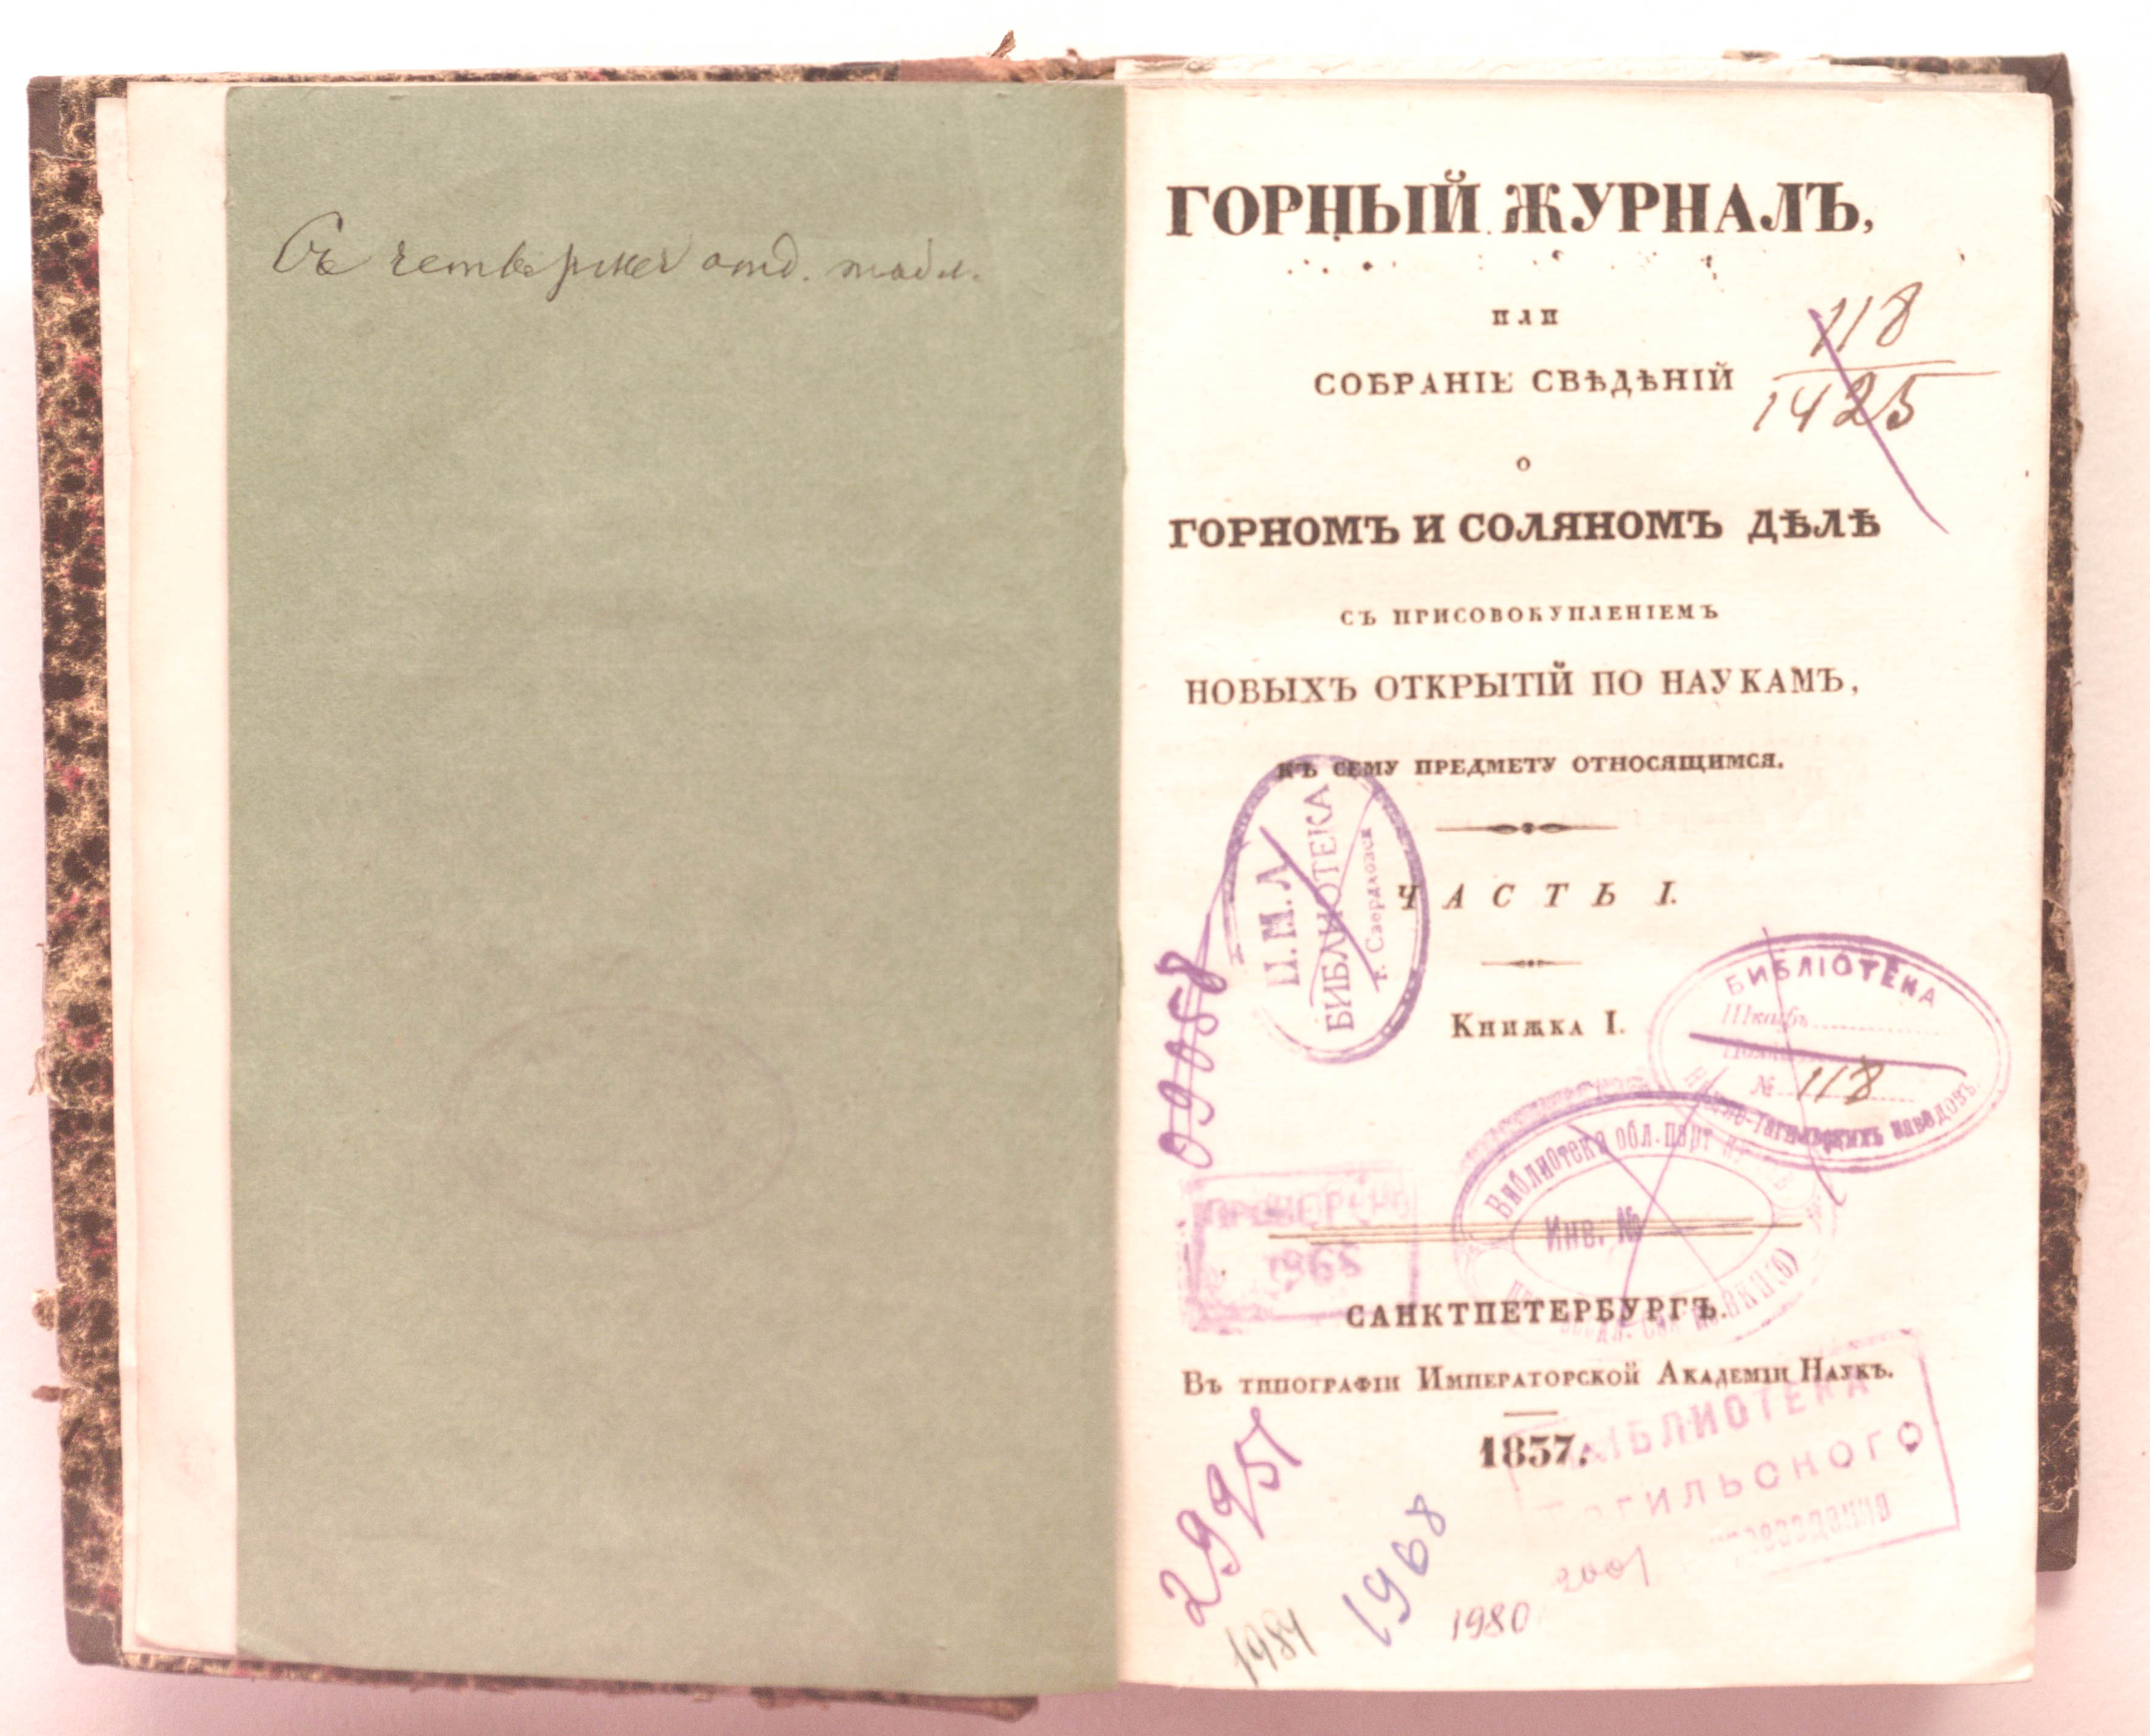 Съ четырмя отд. табл.
ГОРНЫЙ ЖУРНАЛЪ,
ИЛИ
СОБРАНІЕ СВѢДѢНІЙ
118
1425
О
ГОРНОМЪ И СОЛЯНОМЪ ДѢЛѢ
СЪ ПРИСОВОКУПЛЕНІЕМЪ
НОВЫХЪ ОТКРЫТІЙ ПО НАУКАМЪ,
КЪ СЕМУ ПРЕДМЕТУ ОТНОСЯЩИМСЯ.
ЧАСТЬ I.
БИБЛИОТЕКА
г. Свердловск
Книжка I.
БИБЛІОТЕКА
Шкафъ
№ 118
Нижне-Тагильскихъ заводовъ.
09058
Библиотека обл. парт
Инв. №
ВКП(б)
ПРОВЕРЕНО
1968
САНКТПЕТЕРБУРГЪ.
Въ типографіи Императорской Академіи Наукъ.
1837.
БИБЛИОТЕКА
Тагильского
29951
1984
1968
1980
2001